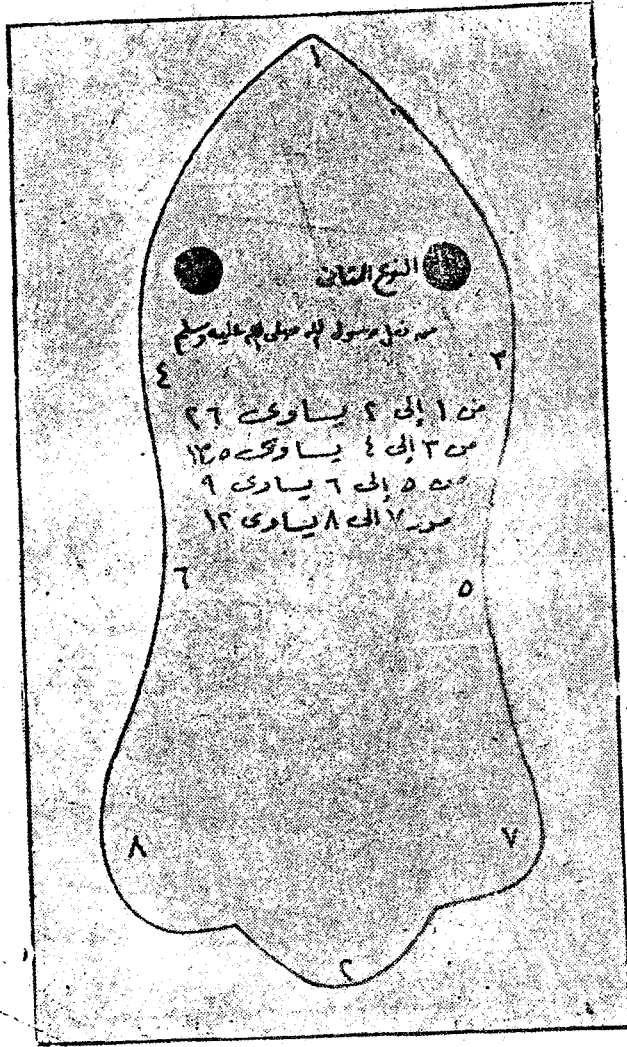 ١
النوع الثانى
من نعل رسول الله صلى الله عليه وسلم
٤ ٣
من ١ إلى ٢ يساوى ٢٦
من ٣ إلى ٤ يساوى
من ٥ إلى ٦ يساوى ٩
من ٧ الى ٨ يساوى ١٢
٦ ٥
٨ ٧
٢